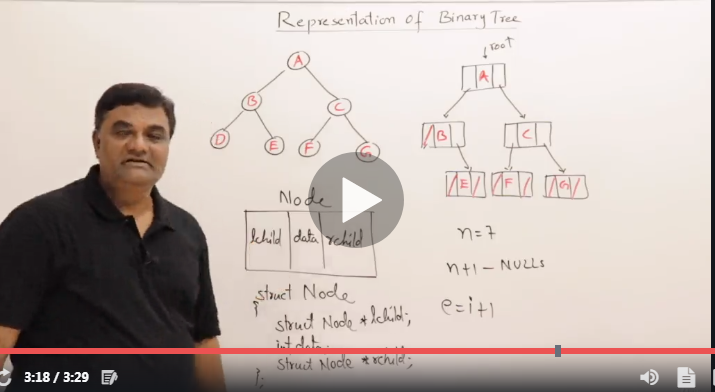 Representation of Binary Tree
A
B
C
D
E
F
G
root
A
B
C
E
F
G
Node
lchild data rchild
struct Node
{
struct Node *lchild;
int data;
struct Node *rchild;
};
n=7
n+1 - NULLs
e=i+1
3:18 / 3:29